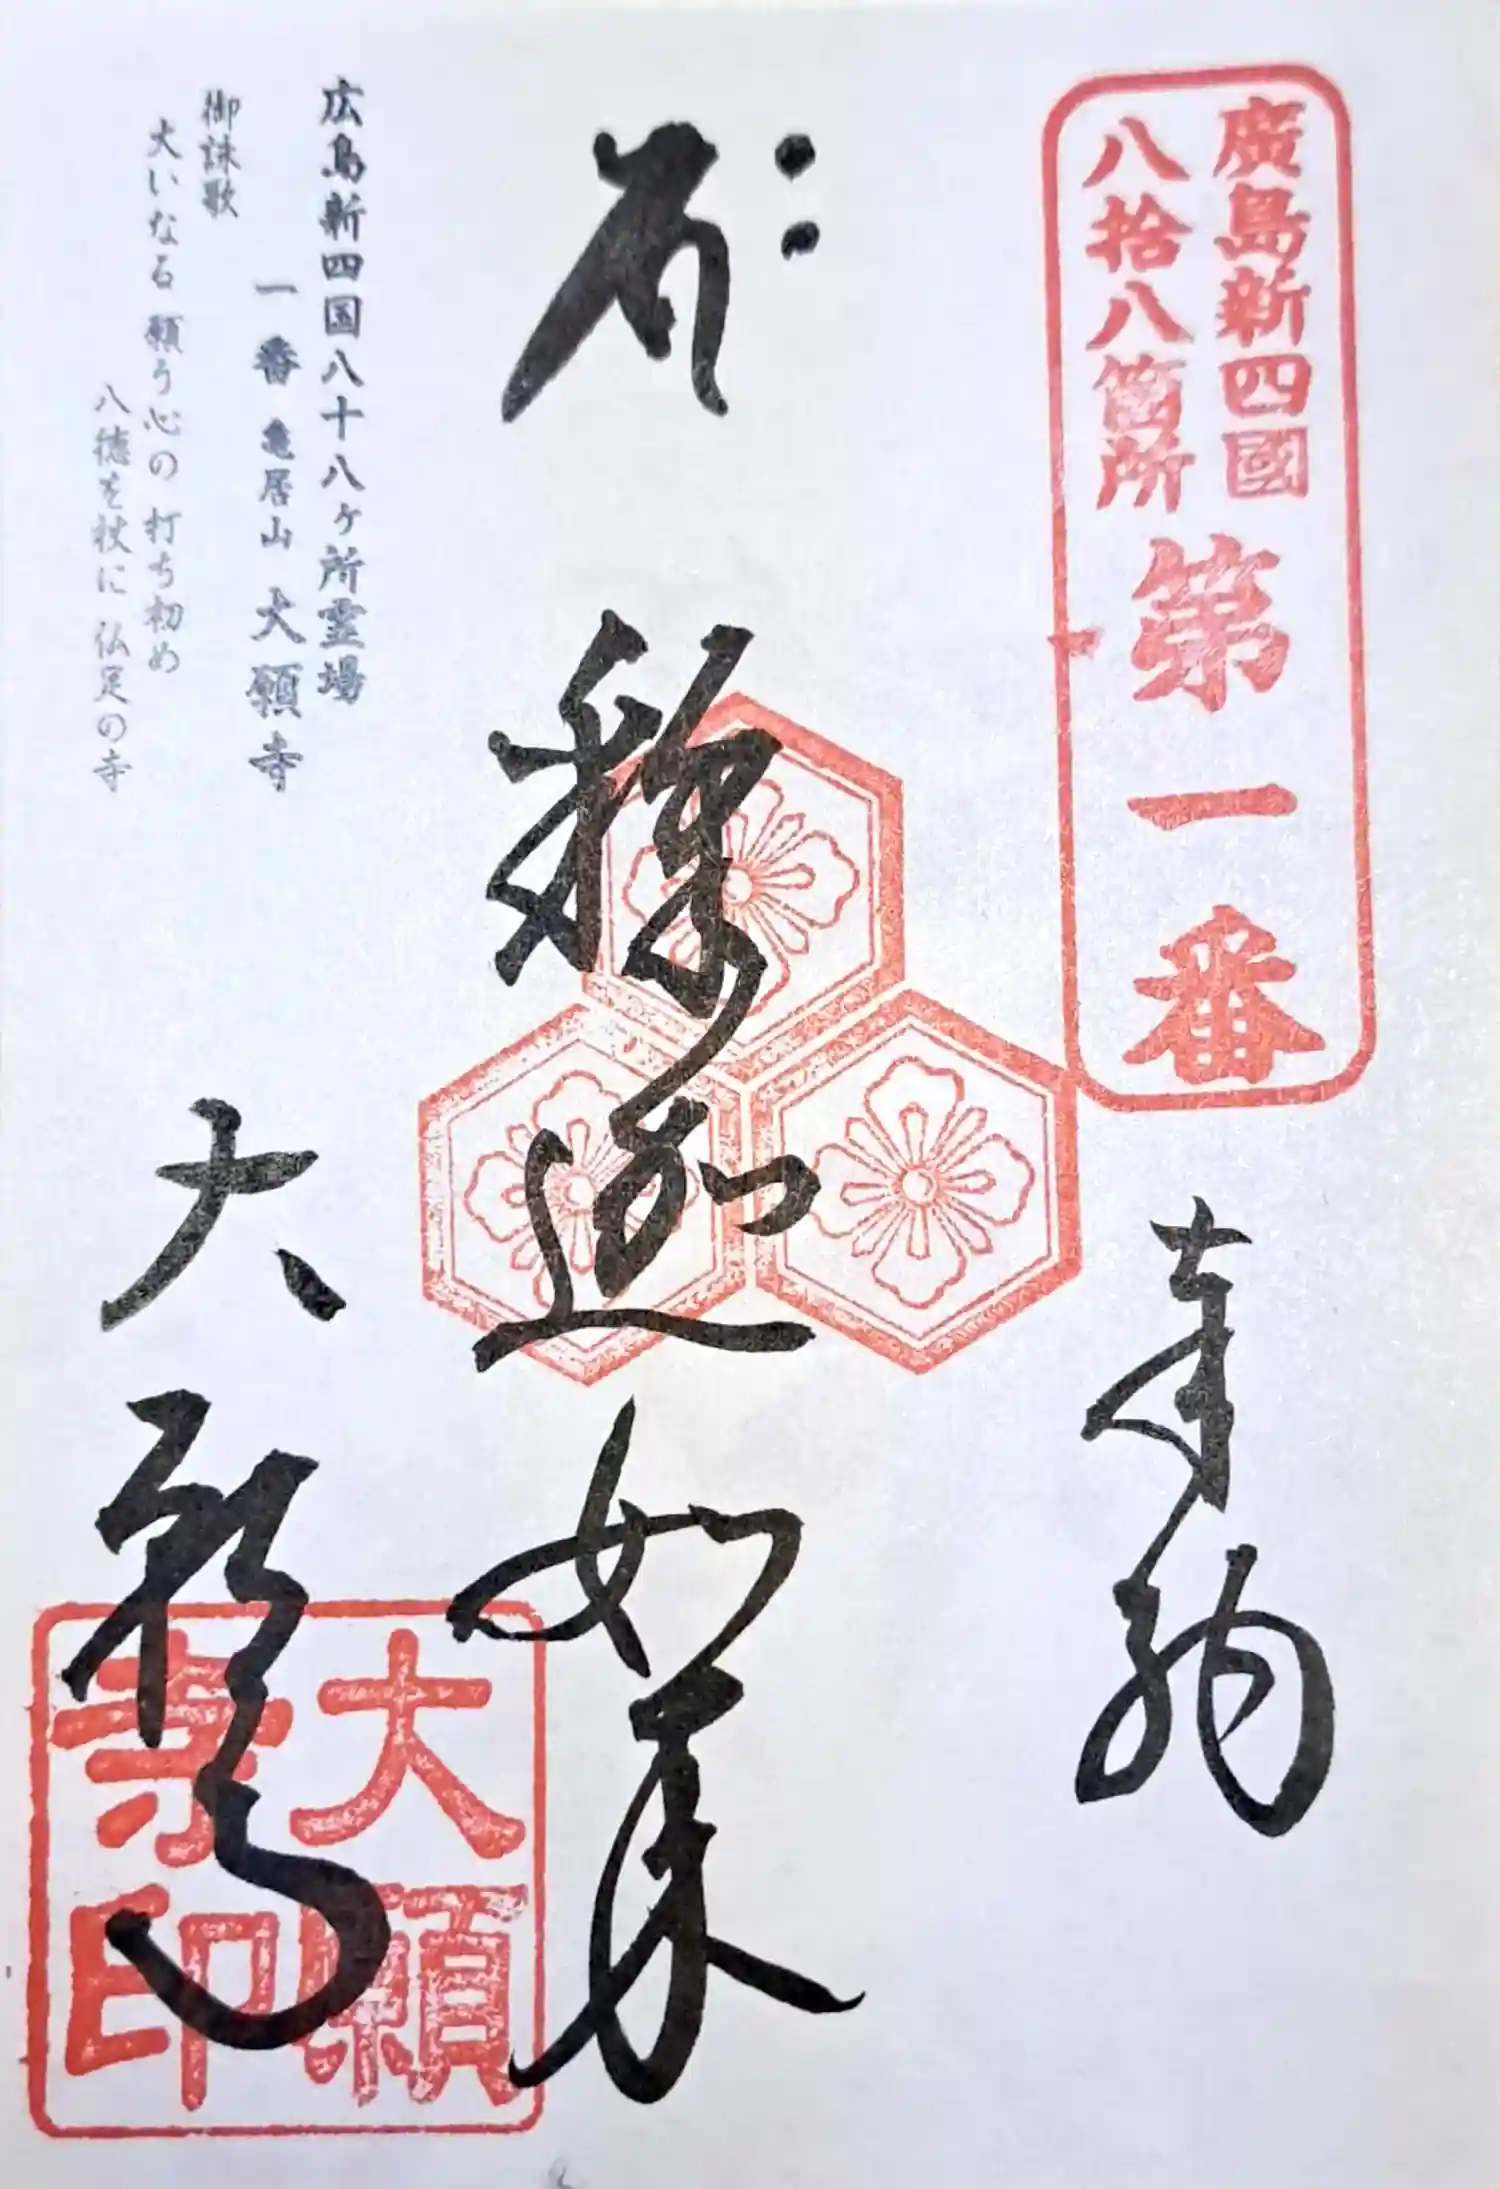 廣島新四國
八拾八箇所
第一番
奉納
釋迦如来
大願寺
大願
寺印
広島新四国八十八ヶ所霊場
一番 亀居山 大願寺
御詠歌
大いなる 願う心の 打ち初め
八徳を杖に 仏足の寺